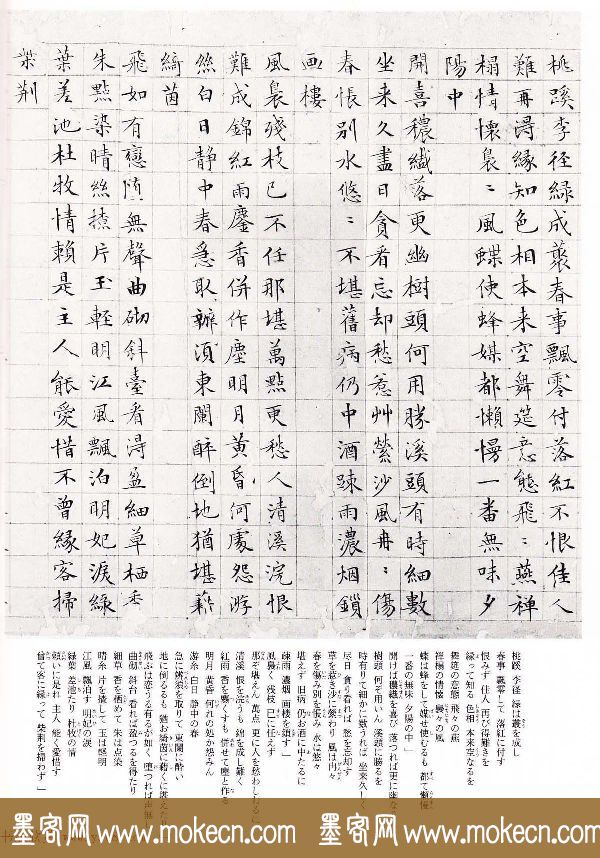 桃蹊李径綠成叢春事飄零付落紅不恨佳人
難再淂緣知色相本来空舞筵意態飛〻燕禅
榻情懷裊〻風蝶使蜂媒都懶慢一番無味夕
陽中
開喜穠纖落更幽樹頭何用勝溪頭有時細數
坐来久盡日貪看忘却愁惹艸縈沙風冉〻傷
春悵别水悠〻不堪舊病仍中酒踈雨濃烟鎖
画樓
風裊殘枝已不任那堪萬點更愁人清溪浣恨
難成錦紅雨鏖香併作塵明月黄昏何處怨游
絲白日静中春急取辦湏東闌醉倒地猶堪藉
綺茵
飛如有戀堕無聲曲砌斜臺看淂盈細草栖香
朱點染晴絲撩片玉軽明江風飄泊明妃淚綠
葉差池杜牧情賴是主人能愛惜不曾緣客掃
柴荆
桃蹊 李径 緑は叢を成し
春事 飄零して 落紅に付す
恨みず 佳人 再び得難きを
縁って知る 色相 本来空なるを
舞筵の意態 飛々の燕
禅榻の情懐 裊々の風
蝶は蜂をして媒せ使むるも 都て懶慢
一番の無味 夕陽の中
開けば穠纖を喜び 落つれば更に幽な
樹頭 何ぞ用いん 渓頭に勝るを
時有りて細かに数うれば 坐来久しく
尽日 貪り看れば 愁を忘却す
草を惹き沙に縈わり 風は冉々
春を傷み別を悵み 水は悠々
堪えず 旧病 仍お酒に中たるに
疎雨 濃烟 画楼を鎖す
風裊く 残枝 已に任えず
那ぞ堪えん 万点 更に人を愁わしむるに
清渓 恨を浣うも 錦を成し難く
紅雨 香を鏖くすも 併せて塵と作る
明月 黄昏 何れの処か怨みん
游糸 白日 静中の春
急に辦須を取りて 東闌に酔い
地に倒るるも 猶お綺茵に藉くに堪えたり
飛ぶは恋うる有るが如く 堕つれば声無
曲砌 斜台 看れば盈つるを得たり
細草 香を栖めて 朱は点染
晴糸 片を撩して 玉は軽明
江風 飄泊す 明妃の涙
緑葉 差池たり 杜牧の情
頼いに是れ 主人 能く愛惜す
曾て客に縁って 柴荆を掃わず
墨客网 www.mokecn.com 墨客网 www.mokecn.com